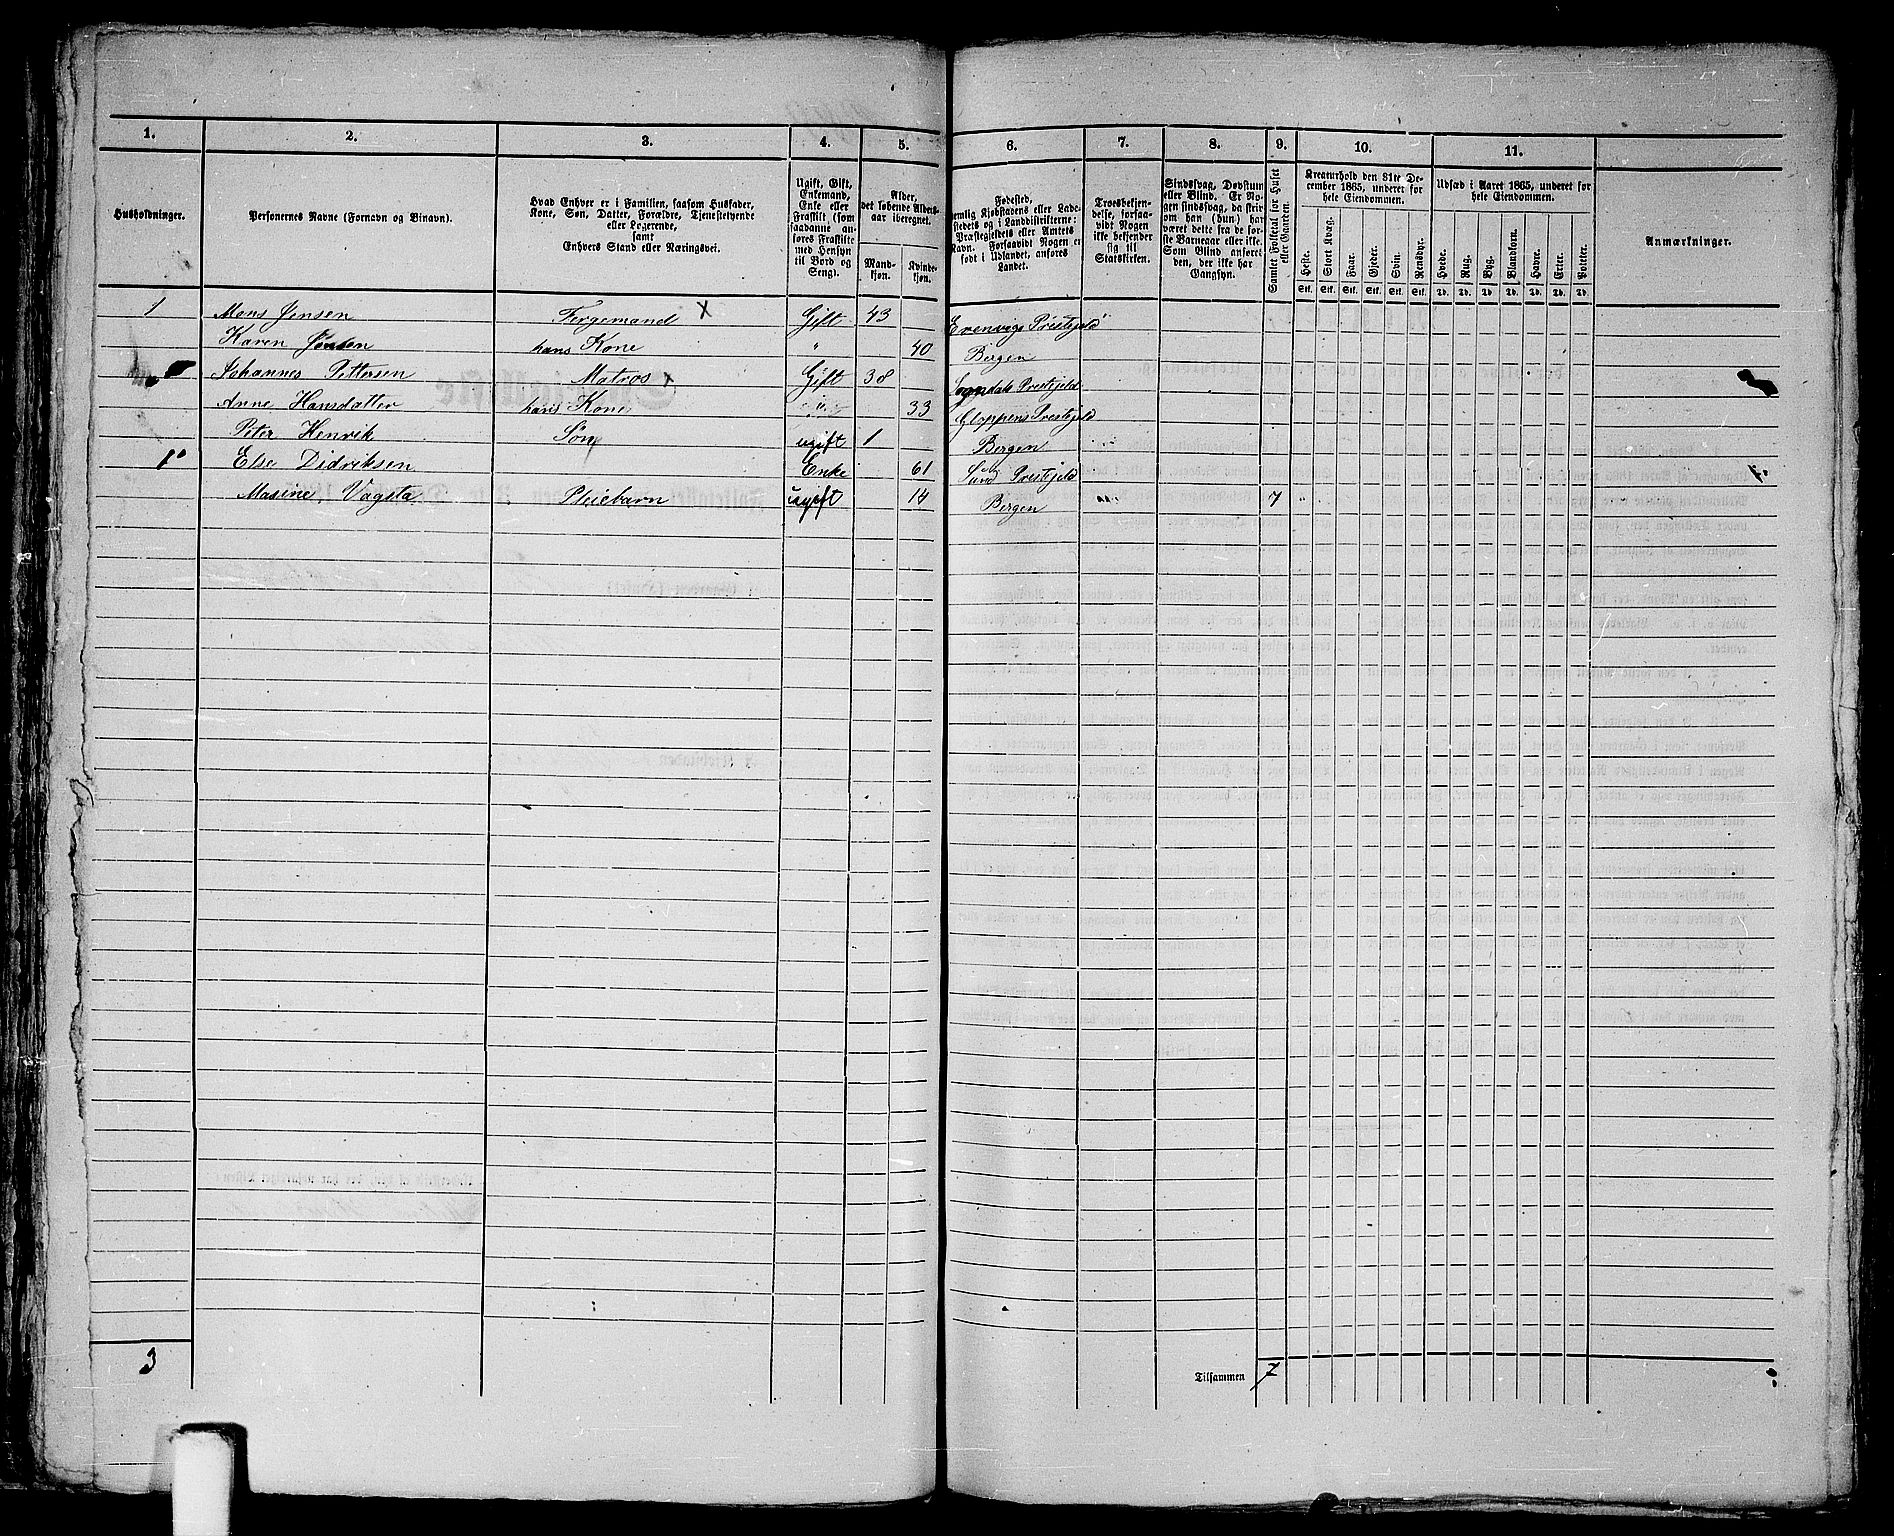 1. 2. 3. 4. 5. 6. 7. 8. 9. 10. 11.
Husholdninger.
Personernes Navne (Fornavn og Binavn).
Hvad Enhver er i Familien, saasom Husfader,
Kone, Søn, Datter, Forældre, Tjenestetyende
eller Logerende,
samt
Enhvers Stand eller Næringsvei.
Ugift, Gift,
Enkemand,
Enke eller
Fraskilt (som
saadanne an-
føres Fraskilte
med Hensyn
til Bord og
Seng).
Alder,
det løbende Alders-
aar iberegnet.
Mand-
kjøn.
Kvinde-
kjøn.
Fødested,
nemlig Kjøbstadens eller Lade-
stedets og i Landdistrikterne:
Præstegjeldets eller Amtets
Navn. Forsaavidt Nogen er
født i Udlandet, anføres
Landet.
Troesbekjen-
delse, forsaa-
vidt Nogen
ikke bekjender
sig til
Statskirken.
Sindssvag, Døvstum
eller Blind. Er No-
gen sindssvag, da skri-
ves om han (hun) har
været dette fra de før-
ste Barneaar eller ikke.
Som Blind anføres
den, der ikke har
Gangsyn.
Samlet Folketal for Huset
eller Gaarden.
Kreaturhold den 31te De-
cember 1865, underet for
hele Eiendommen.
Heste. Stort Kvæg. Faar. Gjeder. Svin. Rensdyr.
Stk. Stk. Stk. Stk. Stk. Stk.
Udsæd i Aaret 1865, underet for
hele Eiendommen.
Hvede. Rug. Byg. Blandkorn. Havre. Erter. Poteter.
Td. Td. Td. Td. Td. Td. Td.
Anmærkninger.
1 Mons Jensen Fergemand x Gift 43 Evenvigs Prestejeld
Karen Jensen hans Kone " 40 Bergen
Johannes Pettersen Matros x Gift 38 Sogndals Prestejeld
Anne Hansdatter hans Kone " 33 Gloppens Prestejeld
Peter Henrik Søn ugift 1 Bergen
1 Else Didriksen Enke 61 Sund Prestejeld
Masine Vagsta Pleiebarn ugift 14 Bergen 7
3
Tilsammen 7